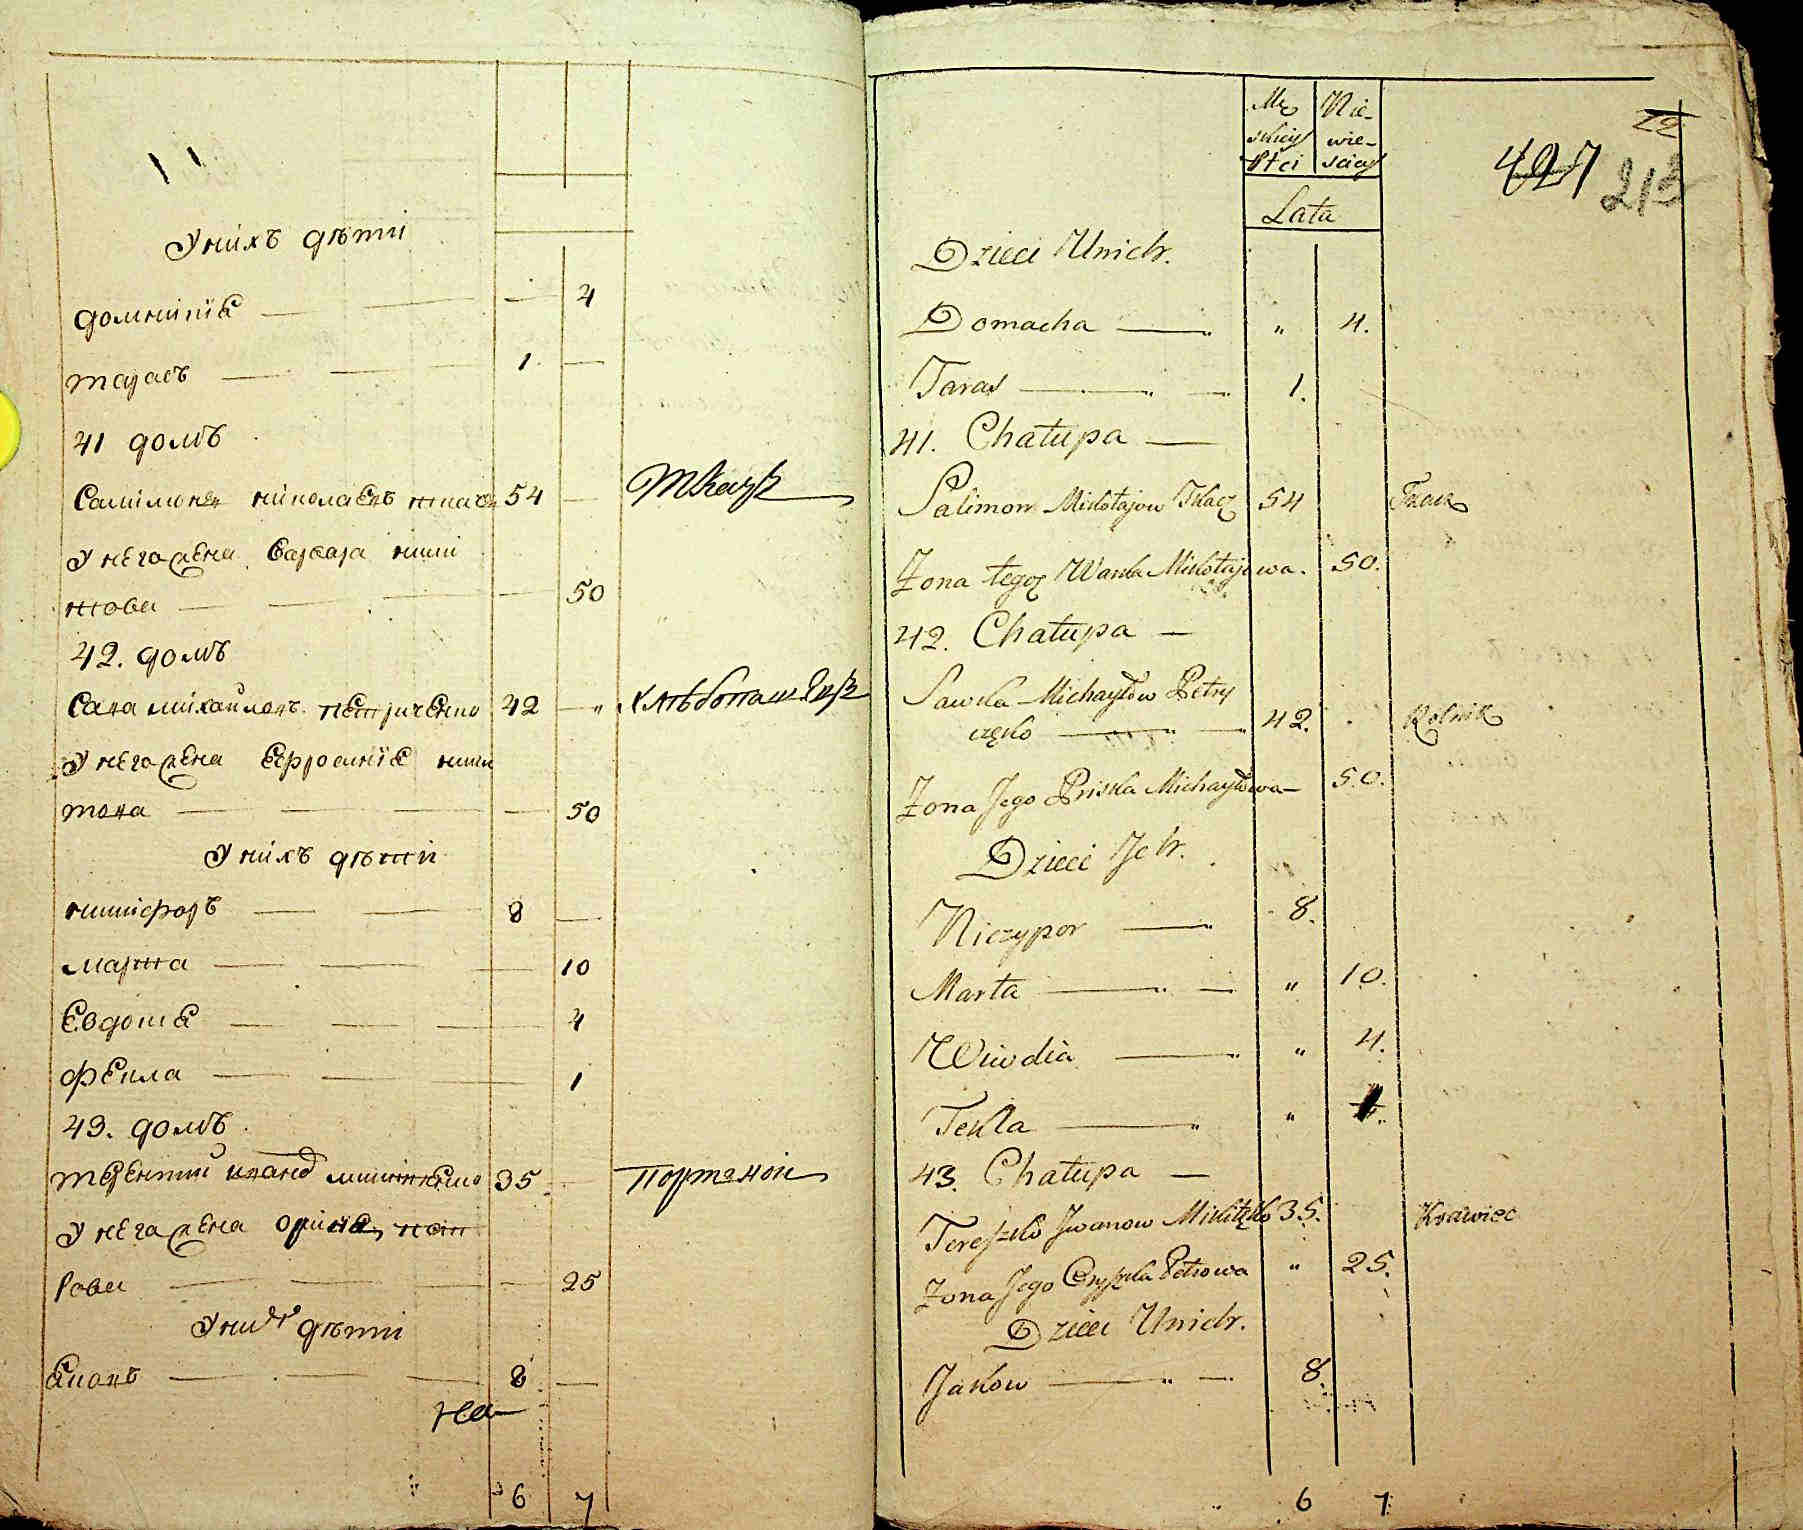 У нихъ дѣти
домникія — — — — 4
тарасъ — — — 1. —
41 домъ
Филимонъ николаевъ ткачъ 54 — Ткачь
У него жена варвара ники
това — — — — 50
42. домъ
Сава михайловъ петриченко 42 — „ хлѣбопашецъ
У него жена ефросинія ники
това — — — — 50
У нихъ дѣти
никифоръ — — 8 —
марта — — — 10
Евдокия — — — 4
Фекла — — — 1
43. домъ.
терентий иванов микитенко 35. — Портной
У него жена орина, пет
рова — — — — 25
У них дѣти
яковъ — — — 8 —
На
6 7
Mę Nie-
skiey wie-
płci sciey
22
427 213
Lata
Dzieci Unich.
Domacha — „ 4.
Taras — „ — 1.
41. Chałupa —
Palimon Mikołajow Tkacz 54 Tkacz
Żona tegoż Warka Mikołajowa. 50.
42. Chałupa —
Sawka Michayłow Petry
częko — „ — 42. Rolnik
Żona Jego Priska Michayłowa — 50.
Dzieci Ich.
Niczypor — „ 8.
Marta — „ — „ 10.
Wiwdia — „ „ 4.
Tekla — „ „ 1.
43. Chałupa —
Tereszko Jwanow Mikitęko 35. Krawiec
Żona Jego Oryszka Petrowa „ 25.
Dzieci Unich.
Jakow — „ — 8.
6 7